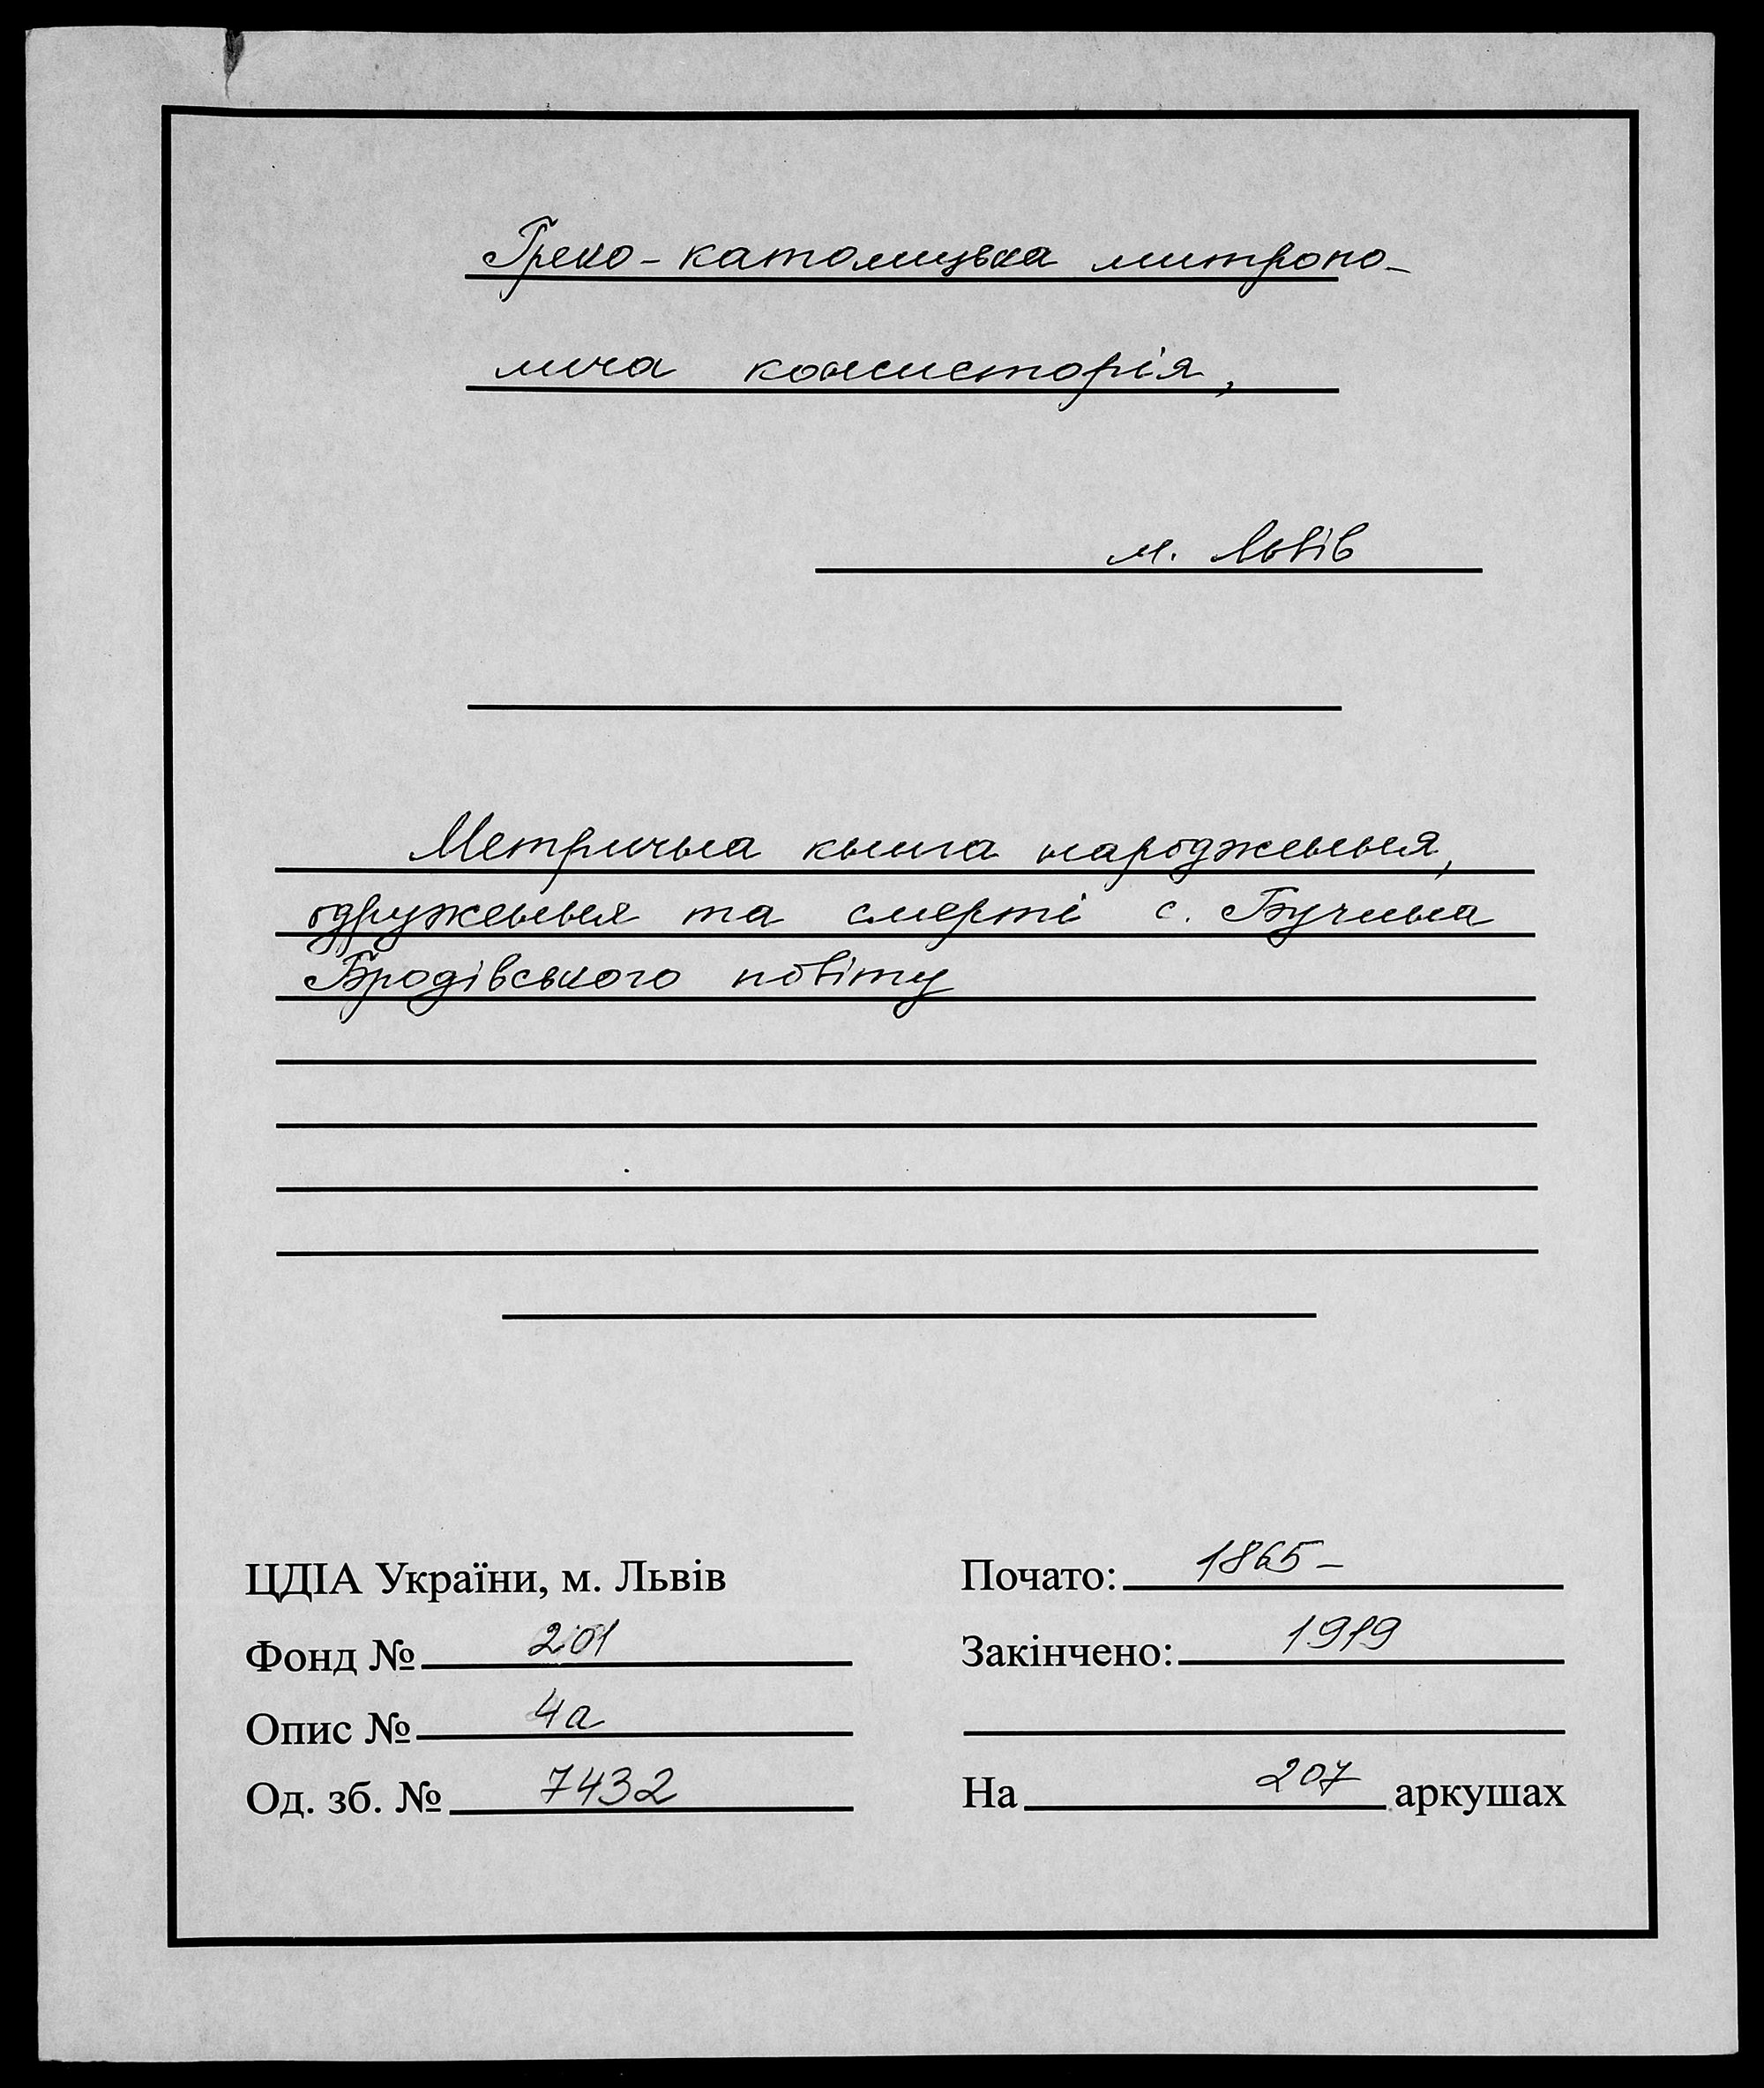 Греко-католицька митропо-
лича консисторія,
м. Львів
Метрична книга народження,
одруження та смерті с. Бучина
Бродівського повіту
ЦДІА України, м. Львів
Почато: 1865-
Фонд № 201
Закінчено: 1919
Опис № 4а
Од. зб. № 7432
На 207 аркушах